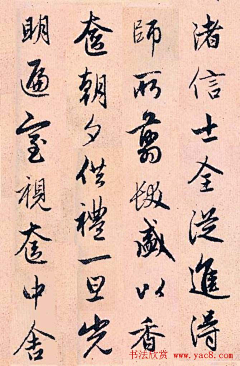 渚信士全從進得
師所剪髮盛以香
奩朝夕供禮一旦光
明遍室視奩中舍
书法欣赏 www.yac8.com